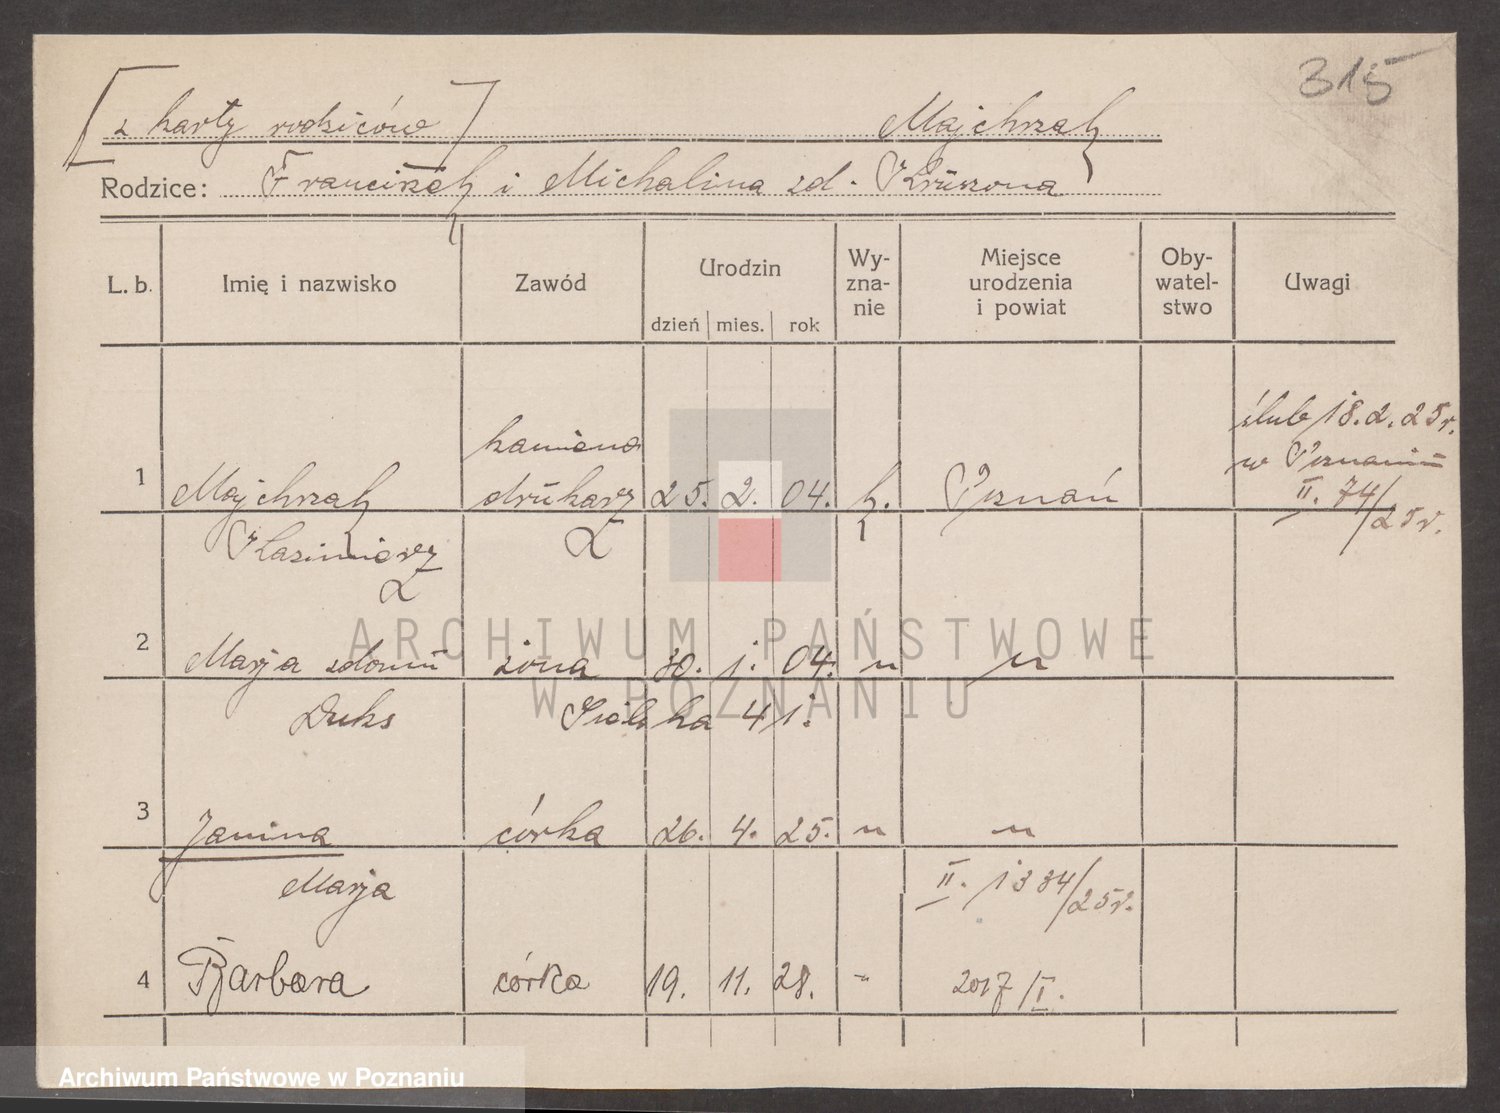 315
[z karty rodziców] Majchrzak
Rodzice: Franciszek i Michalina zd. Kruszona
L. b. Imię i nazwisko Zawód Urodzin dzień mies. rok Wy-zna-nie Miejsce urodzenia i powiat Oby-watel-stwo Uwagi
ślub 18.2.25r.
w Poznaniu
II. 74/25r.
kamieno
1 Majchrzak drukarz 25. 2. 04. k. Poznań
Kazimierz
2 Marja zdomu żona 30. 1. 04. " "
Duks 41.
3 Janina córka 26. 4. 25. " "
Marja II. 1384/25r.
4 Barbara córka 19. 11. 28. " 2017/I.
ARCHIWUM PAŃSTWOWE
W POZNANIU
Archiwum Państwowe w Poznaniu